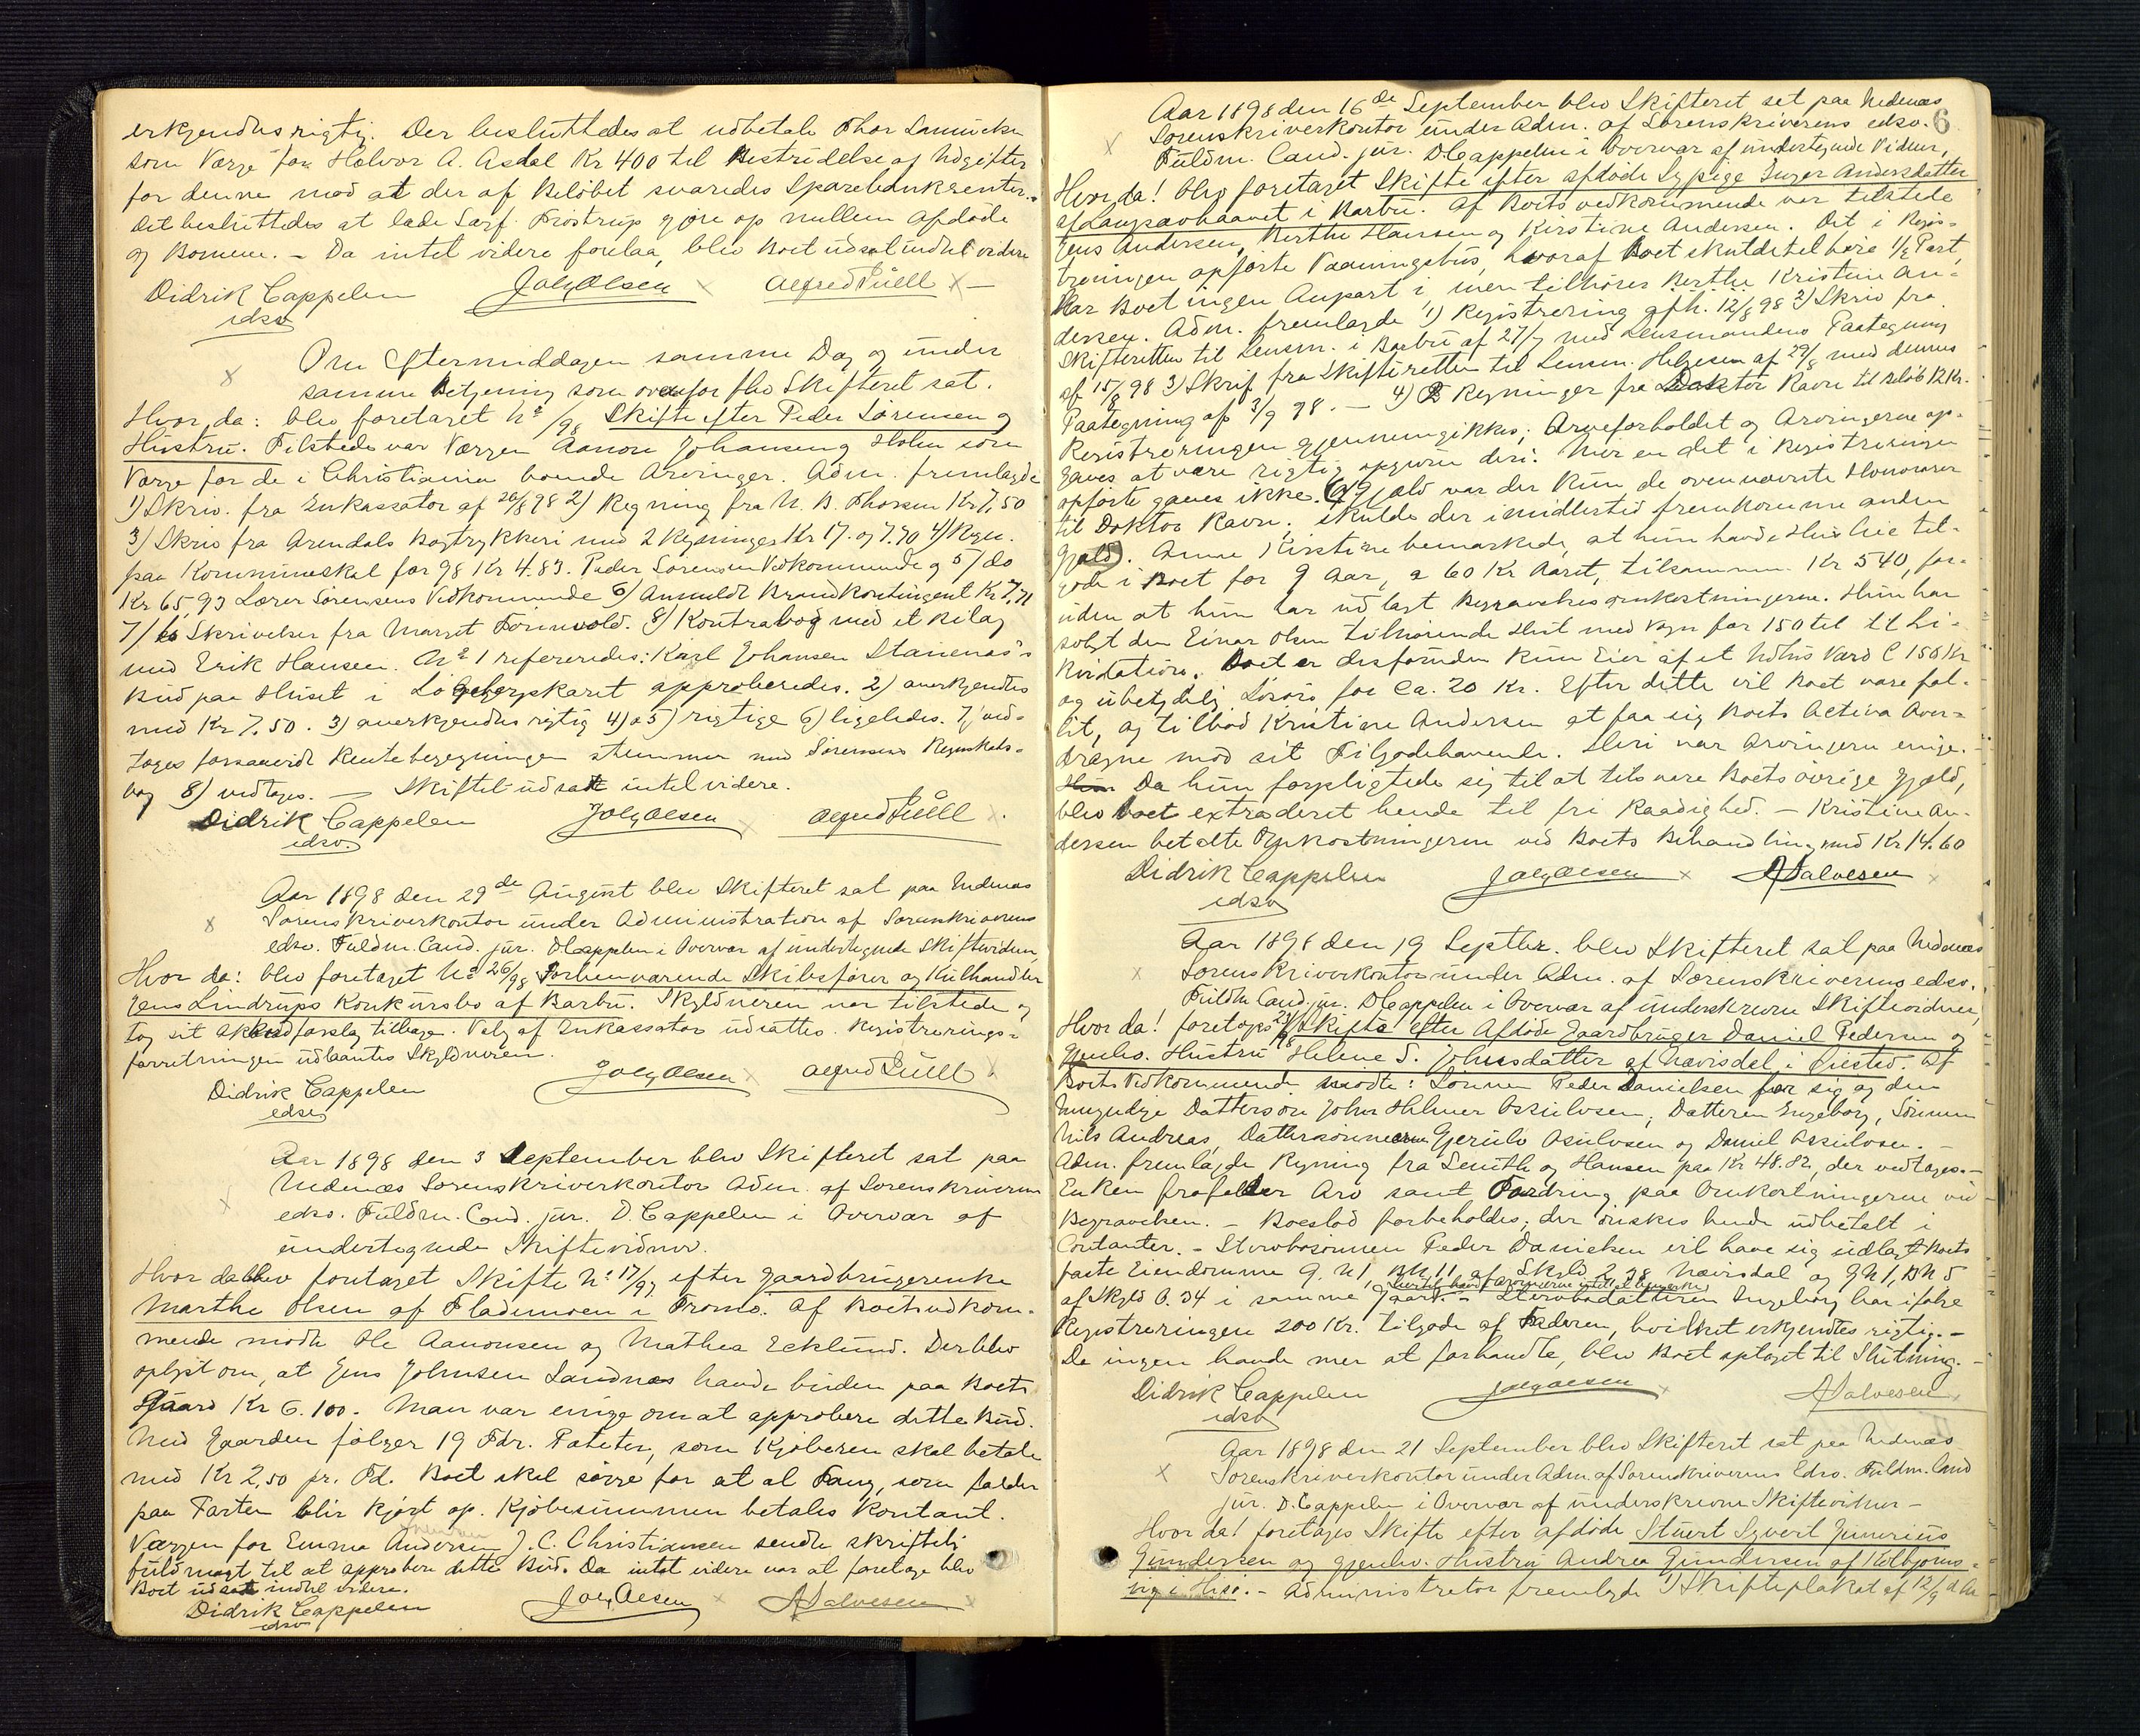 erkjendtes rigtig. Der besluttedes at udbetale Thor
som Værge for Halvor A. Asdal Kr 400 til Bestridelse af Udgifter
for denne mod at der af Beløbet svaredes Sparebanksrenter.
Det besluttedes at lade Sagf. Frostrup gjøre op mellem Afdøde
og Børnene. – Da intet videre forelaa, blev Boet udsat indtil videre
Didrik Cappelen Joh Olsen Alfred Puell
edsv
Om Eftermiddagen samme Dag og under
samme Betjening som ovenfor blev Skifteret sat.
Hvor da: blev foretaget No /98 Skifte efter Peder Sørensen og
Hustru. Tilstede var Værgen Aanon Johansen og Holm som
Værge for de i Christiania boende Arvinger. Adm. fremlagde
1) Skriv. fra Inkassator af 26/8 98 2) Regning fra N. B. Thorsen Kr 7,50
3) Skriv fra Arendals Bogtrykkeri med 2 Regninger Kr 17. og 7.70 4) Regn.
paa Kommuneskat for 98 Kr 4.83. Peder Sørensen Vedkommende og 5) do
Kr 65,93 Lærer Sørensens Vedkommende 6) Anmeldt Brandkontingent Kr 7,71
7) to Skrivelser fra Margit 8) Kontrabog med et Bilag
med Erik Hansen. No 1 refereredes: Karl Johansen
Bud paa Huset i approberedes. 2) anerkjendtes
med Kr 7.50. 3) anerkjendtes rigtig 4) & 5) rigtige 6) ligeledes. 7) ved-
tages forsaavidt Renteberegningen stemmer med Sørensens Regnskabs-
bog 8) vedtages. — Skiftet udsat intil videre.
Didrik Cappelen Joh Olsen Alfred Puell
edsv.
Aar 1898 den 29de August blev Skifteret sat paa Nedenæs
Sorenskriverkontor under Administration af Sorenskriverens
edsv. Fuldm. Cand. jur. D Cappelen i Overvær af undertegnede Skiftevidner,
Hvor da: blev foretaget No 26/98 Forhenværende Skibsfører og Kulhandler
Jens Lindrups Konkursbo af Barbu. Skyldneren var tilstede og
tog sit Akkordforslag tilbage. Valg af Inkassator udsattes. Registrerings-
forretningen udlaantes Skyldneren.
Didrik Cappelen Joh Olsen Alfred Puell
edsv
Aar 1898 den 3 September blev Skifteret sat paa
Nedenæs Sorenskriverkontor Adm. af Sorenskriverens
edsv. Fuldm. Cand. jur. D. Cappelen i Overvær af
undertegnede Skiftevidner.
Hvor da blev foretaget Skifte No 17/97 efter Gaardbrugerenke
Marthe Olsen af Flademoen i Tromø. Af Boets vedkom-
mende mødte Ole Aanonsen og Mathea Ecklund. Der blev
oplyst om, at Jens Johnsen Sandnæs havde buden paa Boets
Gaard Kr 6.100. Man var enige om at approbere dette Bud.
Med Gaarden følger 19 Tdr. Poteter, som Kjøberen skal betale
med Kr 2,50 pr. Td. Boet skal sørge for at al Tang, som falder
paa Parten blir kjørt op. Kjøbesummen betales kontant.
Værgen for Emma Andersen J. C. Christiansen sendte skriftlig
fuldmagt til at approbere dette Bud. Da intet videre var at foretage blev
Boet udsat indtil videre.
Didrik Cappelen Joh Olsen A Salvesen
edsv
6
Aar 1898 den 16de September blev Skifteret sat paa Nedenæs
Sorenskriverkontor under Adm. af Sorenskriverens edsv.
Fuldm. Cand. jur. D Cappelen i Overvær af undertegnede Vidner,
Hvor da! blev foretaget Skifte efter afdøde Sypige Inger Andersdatter
af Langsævhaavet i Barbu. Af Boets vedkommende var tilstede
Jens Andersen, Berthe Hansen og Kirstine Andersen. Det i Regis-
treringen opførte Vaaningshus, hvoraf Boet skulde tilhøre 1/2 Part,
har Boet ingen Anpart i men tilhører Berthe Kristine An-
dersen. Adm. fremlagde 1) Registrering afh. 12/8 98 2) Skriv fra
Skifteretten til Lensm. i Barbu af 27/7 med Lensmandens Paategning
af 15/8 98 3) Skrif. fra Skifteretten til Lensm. Helgesen af 29/8 med dennes
Paategning af 3/9 98. — 4) Regninger fra Doktor Ravn til Beløb 12 Kr.
Registreringen gjennemgikkes; Arveforholdet og Arvingerne op-
gaves at være rigtig opgivne deri. Mer en det i Registreringen
opførte gaves ikke. Af Gjæld var der kun de ovennævnte Honorarer
til Doktor Ravn; skulde der imidlertid fremkomme anden
Gjæld. Anne Kirstine bemærkede, at hun havde Husleie til-
gode i Boet for 9 Aar, a 60 Kr Aaret, tilsammen Kr 540, for-
uden at hun har udlagt Begravelsesomkostningerne. Hun har
solgt den Einar Olsen tilhørende Hest med Vogn for 150 til
Boet er desforuden kun Eier af et Uthus Værd C 150 Kr
og ubetydelig Løsøre for Ca. 20 Kr. Efter dette vil Boet være fal-
lit, og tilbød Kristine Andersen at faa sig Boets Activa over-
dragne mod sit Tilgodehavende. Heri var Arvingerne enige.
Da hun forpligtede sig til at tilsvare Boets øvrige Gjæld,
blev Boet extraderet hende til fri Raadighed. – Kristine An-
dersen betalte Omkostningerne ved Boets Behandling med Kr 14.60
Didrik Cappelen Joh Olsen A Salvesen
edsv
Aar 1898 den 19 Septbr. blev Skifteret sat paa Nedenæs
Sorenskriverkontor under Adm. af Sorenskriverens edsv.
Fuldm Cand. jur. D Cappelen i Overvær af underskrevne Skiftevidner,
Hvor da! foretoges Skifte efter Afdøde Gaardbruger Daniel Pedersen og
Gjenlev. Hustru Helene S. Johnsdatter af Nævisdal i Øiestad. Af
Boets Vedkommende mødte: Sønnen Peder Danielsen for sig og den
umyndige Dattersøn John Helmer Osuldsen, Datteren Ingeborg, Sønnen
Nils Andreas, Dattersønnerne Gjerulv Osuldsen og Daniel Osuldsen. –
Adm. fremlagde Regning fra Smith og Hansen paa Kr 48.82, der vedtages. –
Enken frafalder Arv samt Fordring paa Omkostningerne ved
Begravelsen. – Boeslod forbeholdes; der ønskes hende udbetalt i
Contanter. – Stervbosønnen Peder Danielsen vil have sig udlagt Boets
faste Eiendomme G. N 1, B N 11 af Skyld 2.98 Nævisdal og G N 1, B N 5
af Skyld 0.34 i samme Gaard – Stervbodatteren Ingeborg har ifølge
Registreringen 200 Kr. tilgode af Faderen, hvilket erkjendtes rigtig. –
Da ingen havde mer at forhandle, blev Boet optaget til Slutning. –
Didrik Cappelen Joh Olsen A Salvesen
edsv
Aar 1898 den 21 September blev Skifteret sat paa Nedenæs
Sorenskriverkontor under Adm. af Sorenskriverens Edsv. Fuldm. Cand
jur. D. Cappelen i Overvær af underskrevne Skiftevidner –
Hvor da! foretoges Skifte efter afdøde Stuert Syvert Gunerius
Gundersen og gjenlev. Hustru Andrea Gundersen af Kolbjørns-
vig i Hisø. – Administrator fremlagde 1) Skifteplakat af 12/9 d. A.